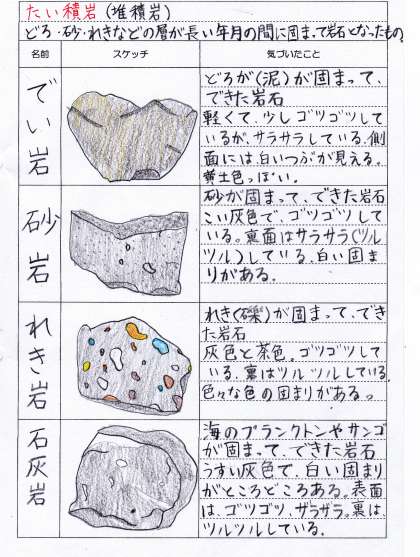 たい積岩(堆積岩)
どろ・砂・れきなどの層が長い年月の間に固まって岩石となったもの。
名前
スケッチ
気づいたこと
でい岩
どろが(泥)が固まって、
できた岩石
軽くて、少しゴツゴツして
いるが、サラサラしている。側
面には、白いつぶが見える。
黄土色っぽい。
砂岩
砂が固まって、できた岩石
こい灰色で、ゴツゴツして
いる。裏面はサラサラ(ツル
ツル)している、白い固ま
りがある。
れき岩
れき(礫)が固まって、でき
た岩石
灰色と茶色。ゴツゴツして
いる、裏はツルツルしている。
色々な色の固まりがある。
石灰岩
海のプランクトンやサンゴ
が固まって、できた岩石
うすい灰色で、白い固まり
がところどころある。表面
は、ゴツゴツ、ザラザラ。裏は、
ツルツルしている.